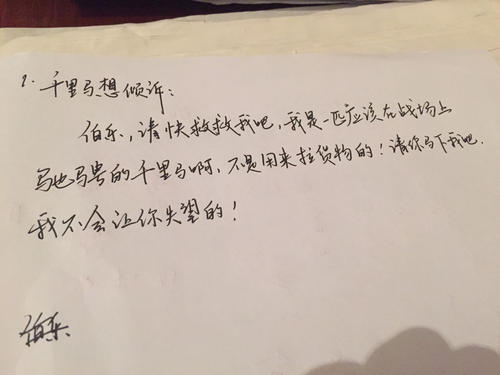 1. 千里马想倾诉:
伯乐,请快救救我吧,我是一匹应该在战场上
驰骋的千里马啊,不是用来拉货物的!请你下我吧.
我不会让你失望的!
伯乐